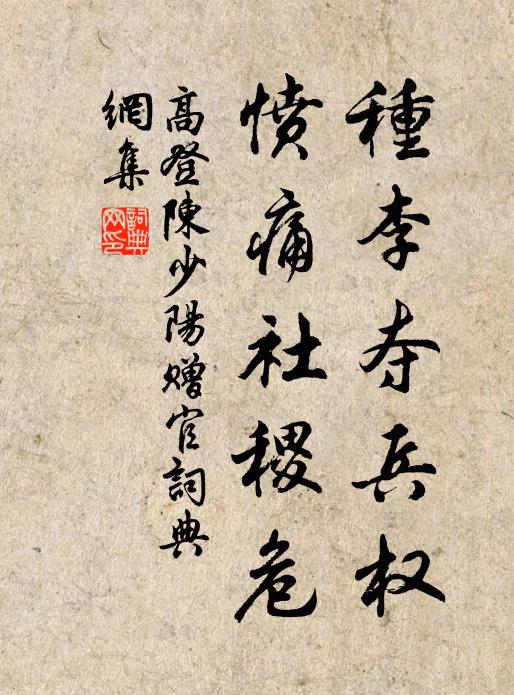 種李夺兵权
憤痛社稷危
高登陳少陽赠官詞典
網集
詞典网印